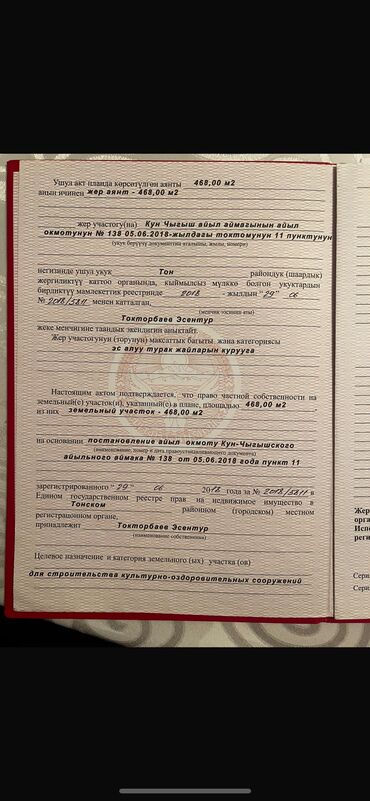 Ушул акт планда көрсөтүлгөн аянты 468,00 м2
анын ичинен жер аянт - 468,00 м2
жер участогу(на) Кун Чыгыш айыл аймагынын айыл
окмотунун № 138 05.06.2018-жылдагы токтомунун 11 пунктунун
(укук берүүчү документтин аталышы, жылы, номери)
негизинде ушул укук Тон райондук (шаардык)
жергиликтүү каттоо органында, кыймылсыз мүлккө болгон укуктардын
бирдиктүү мамлекеттик реестринде 2018 - жылдын "29" 06
№ 2018/5811 менен катталган,
(менчик ээсинин аты)
Токторбаев Эсентур
жеке менчигине таандык экендигин аныктайт.
Жер участогунун (торунун) максаттык багыты жана категориясы
эс алуу турак жайларын курууга
Настоящим актом подтверждается, что право частной собственности на
земельный(е) участок(и), указанный(е) в плане, площадью 468,00 м2
из них земельный участок - 468,00 м2
на основании постановление айыл окмоту Кун-Чыгышского
(наименование, номер и дата правоустанавливающего документа)
айыльного аймака № 138 от 05.06.2018 года пункт 11
зарегистрированного "29" 06 2018 года за № 2018/5811 в
Едином государственном реестре прав на недвижимое имущество в
Тонском районном (городском) местном
регистрационном органе,
принадлежит Токторбаев Эсентур
(наименование собственника)
Целевое назначение и категория земельного (ых) участка (ов)
для строительства культурно-оздоровительных сооружений
Жер
орга
Испо
реги
Сери
Сери